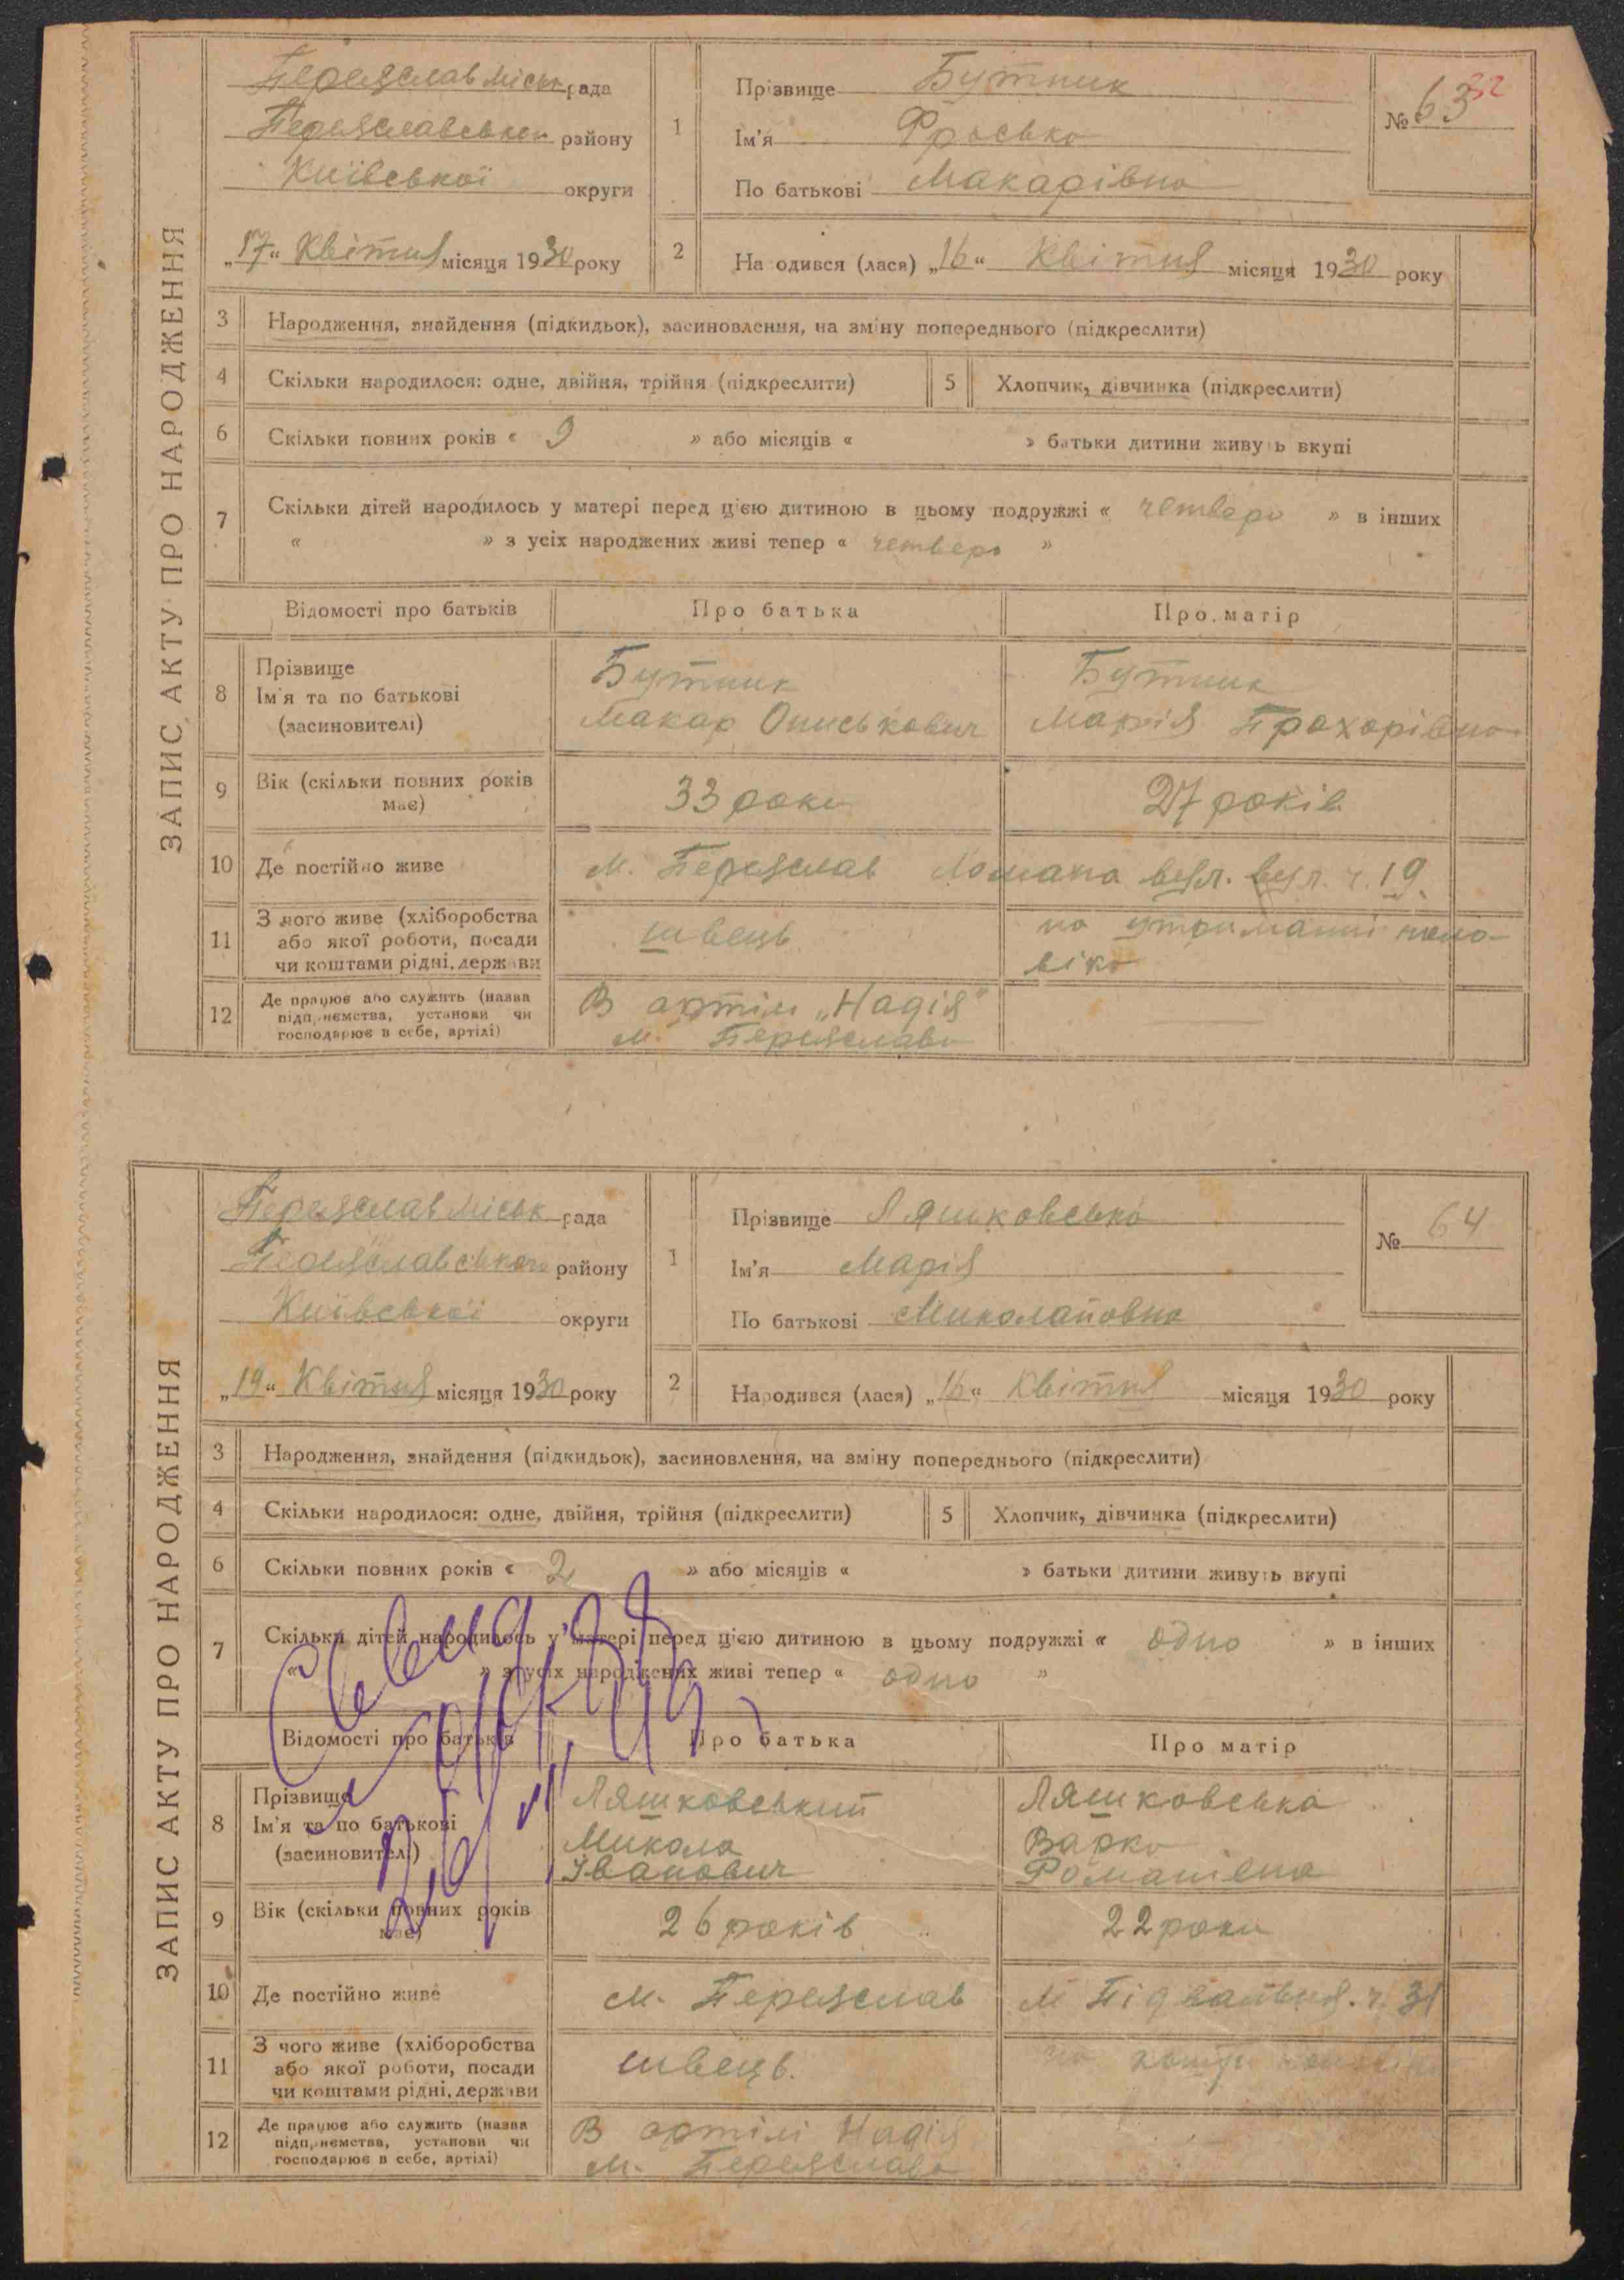 ЗАПИС АКТУ ПРО НАРОДЖЕННЯ
Переяслав міськ рада
Переяславського району
Київської округи
„17“ Квітня місяця 1930 року
1
Прізвище Бутник
Ім'я Фроська
По батькові Макарівна
№ 63
32
2
На одився (лася) „16“ Квітня місяця 1930 року
3 Народження, знайдення (підкидьок), засиновлення, на зміну попереднього (підкреслити)
4 Скільки народилося: одне, двійня, трійня (підкреслити) 5 Хлопчик, дівчинка (підкреслити)
6 Скільки повних років « 9 » або місяців « » батьки дитини живуть вкупі
7 Скільки дітей народилось у матері перед цією дитиною в цьому подружжі « четверо » в інших
« » з усіх народжених живі тепер « четверо »
Відомості про батьків Про батька Про матір
8 Прізвище
Ім'я та по батькові
(засиновителі)
Бутник
Макар Ониськович
Бутник
Марія Прохорівна
9 Вік (скільки повних років
має)
33 роки
27 років
10 Де постійно живе м. Переяслав вул. ч. 19.
11 З чого живе (хліборобства
або якої роботи, посади
чи коштами рідні, держави
швець
на утриманні чоло-
віка
12 Де працює або служить (назва
підприємства, установи чи
господарює в себе, артілі)
В артіли „Надія“
м. Переяслава
ЗАПИС АКТУ ПРО НАРОДЖЕННЯ
Переяслав міськ рада
Переяславського району
Київської округи
„19“ Квітня місяця 1930 року
1
Прізвище Ляшковська
Ім'я Марія
По батькові Миколаповна
№ 64
2
Народився (лася) „16“ Квітня місяця 1930 року
3 Народження, знайдення (підкидьок), засиновлення, на зміну попереднього (підкреслити)
4 Скільки народилося: одне, двійня, трійня (підкреслити) 5 Хлопчик, дівчинка (підкреслити)
6 Скільки повних років « 2 » або місяців « » батьки дитини живуть вкупі
7 Скільки дітей народилось у матері перед цією дитиною в цьому подружжі « одно » в інших
« » з усіх народжених живі тепер « одно »
Відомості про батьків Про батька Про матір
8 Прізвище
Ім'я та по батькові
(засиновителі)
Ляшковський
Микола
Іванович
Ляшковська
Варка
Романівна
9 Вік (скільки повних років
має)
26 років
22 роки
10 Де постійно живе м. Переяслав ч. 31
11 З чого живе (хліборобства
або якої роботи, посади
чи коштами рідні, держави
швець.
12 Де працює або служить (назва
підприємства, установи чи
господарює в себе, артілі)
В артілі Надія
м. Переяслава